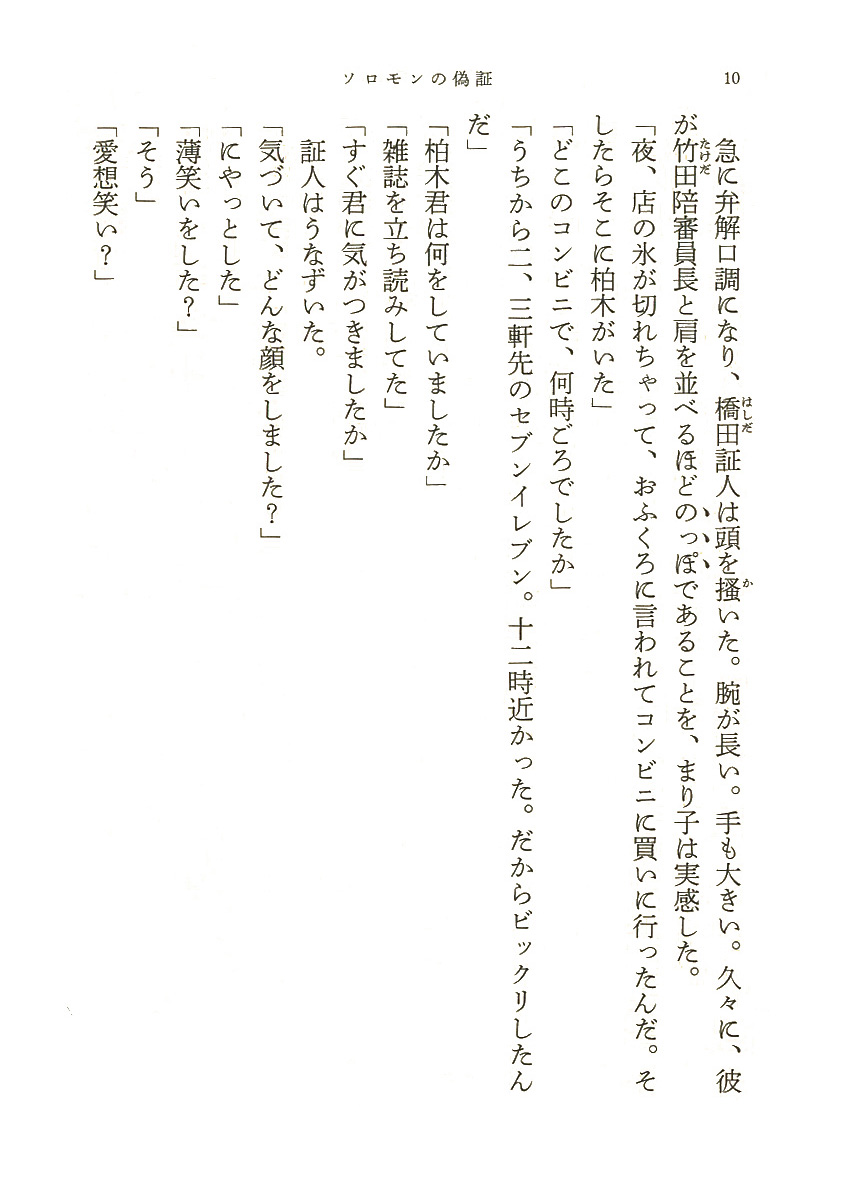 ソロモンの偽証
10
急に弁解口調になり、橋田証人は頭を搔いた。腕が長い。手も大きい。久々に、彼
が竹田陪審員長と肩を並べるほどのっぽであることを、まり子は実感した。
「夜、店の氷が切れちゃって、おふくろに言われてコンビニに買いに行ったんだ。そ
したらそこに柏木がいた」
「どこのコンビニで、何時ごろでしたか」
「うちから二、三軒先のセブンイレブン。十二時近かった。だからビックリしたん
だ」
「柏木君は何をしていましたか」
「雑誌を立ち読みしてた」
「すぐ君に気がつきましたか」
証人はうなずいた。
「気づいて、どんな顔をしました？」
「にやっとした」
「薄笑いをした？」
「そう」
「愛想笑い？」